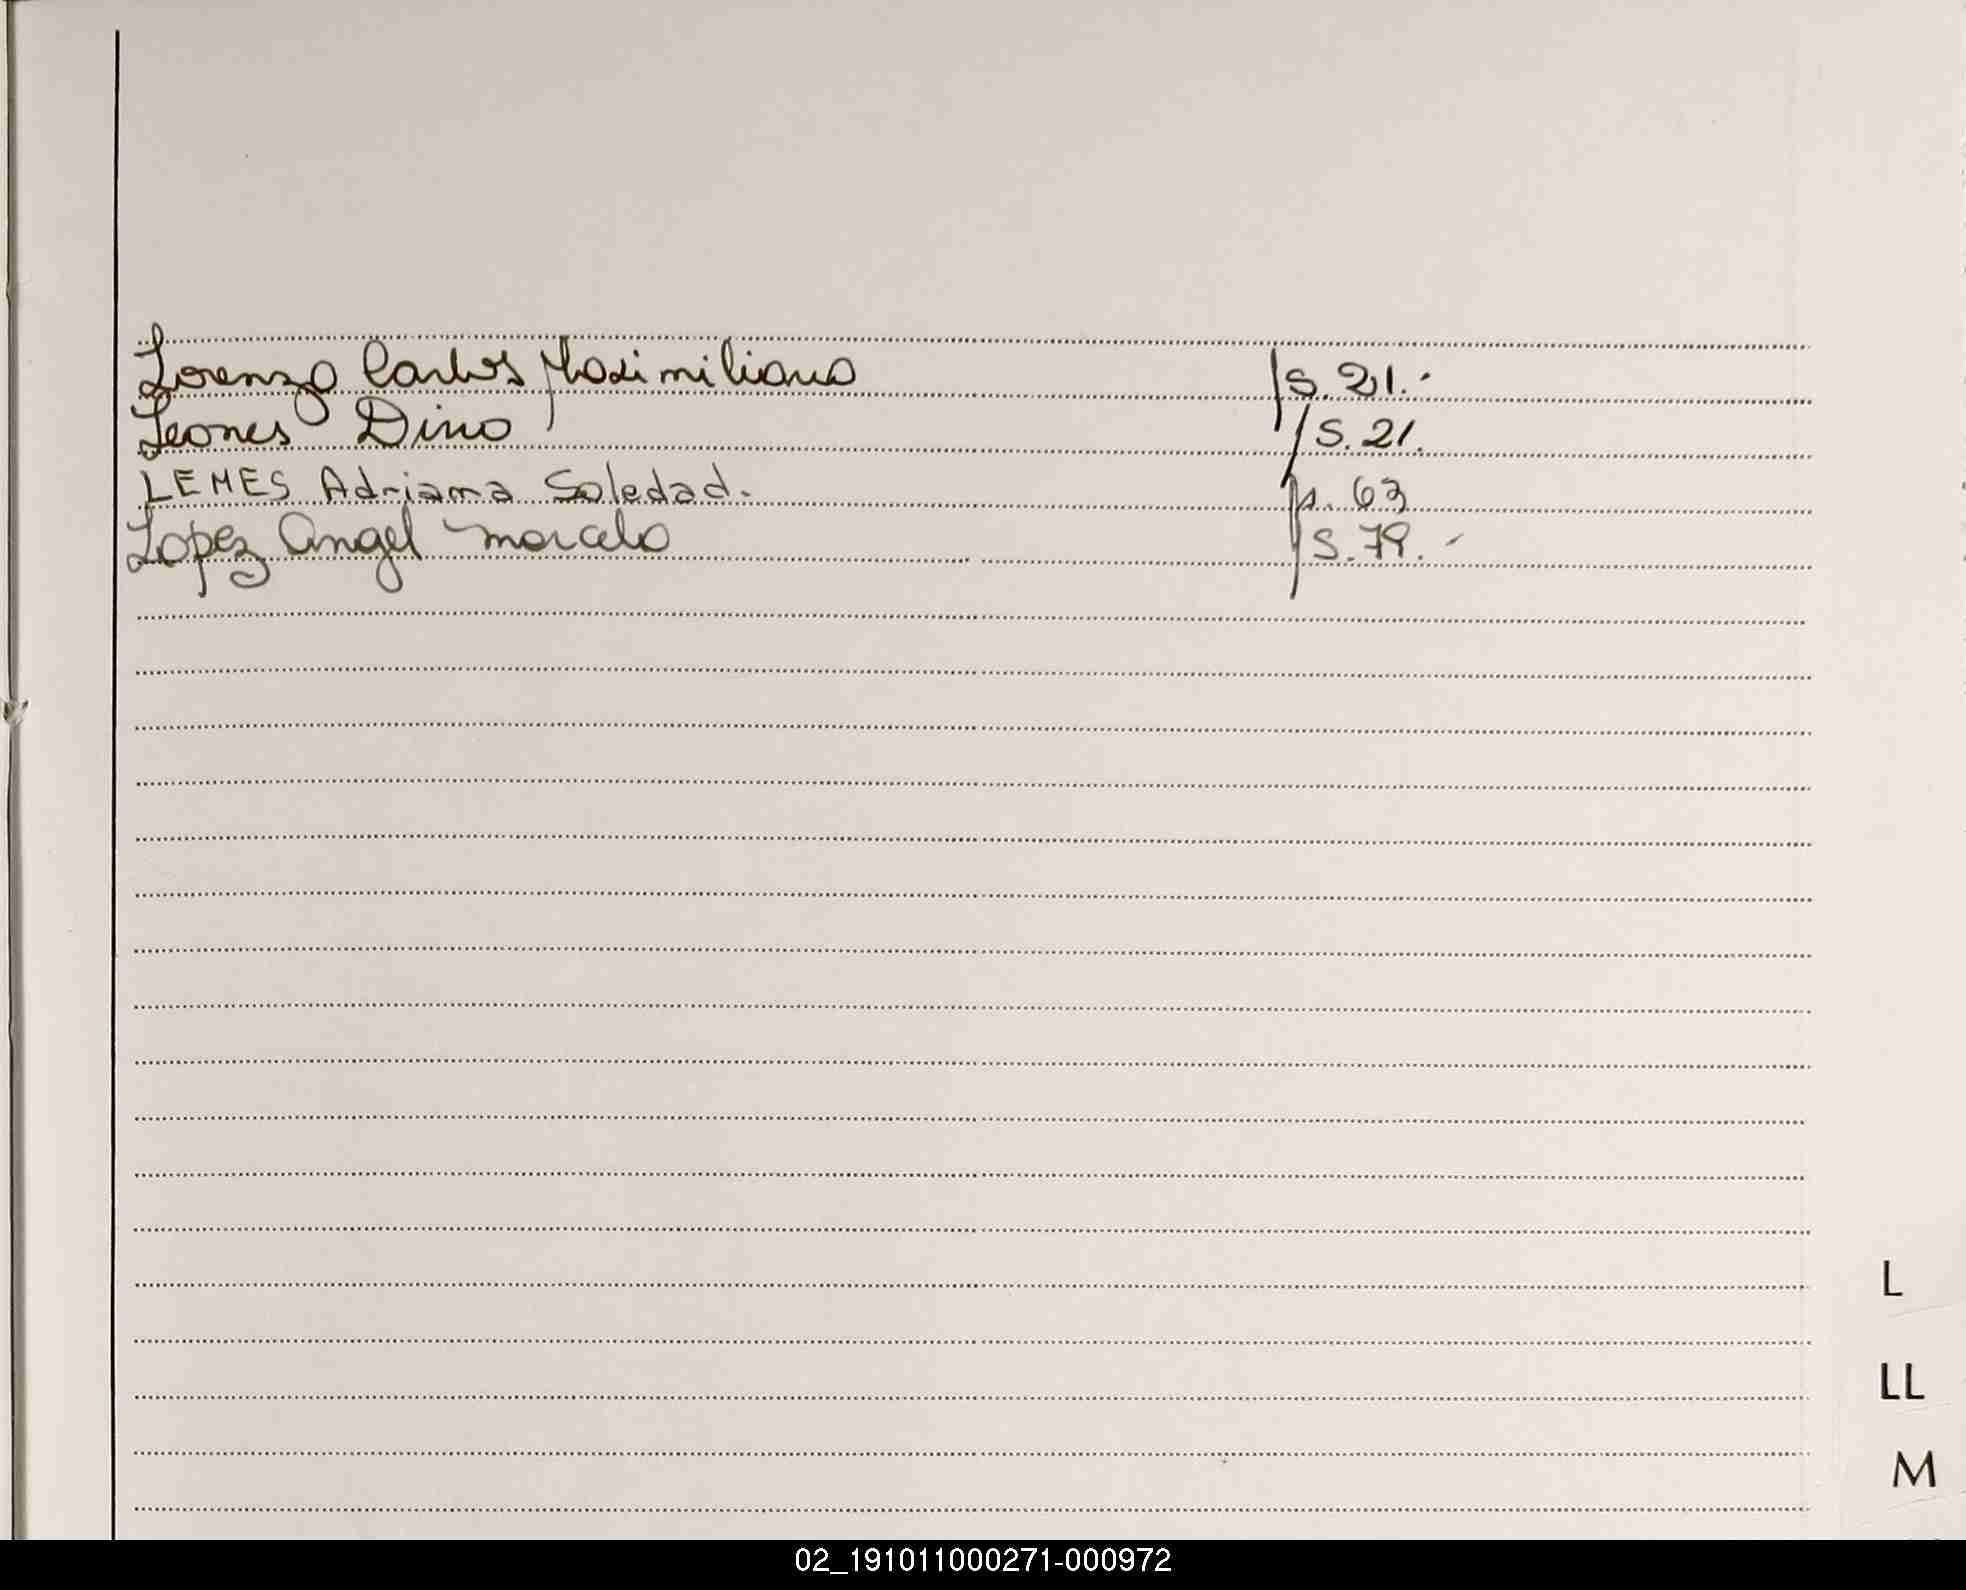 Lorenzo Carlos Maximiliano /s. 21.-
Leones Dino /s. 21.
LEMES Adriana Soledad. /s. 63
Lopez Angel Marcelo /s. 79.-
L
LL
M
02_191011000271-000972